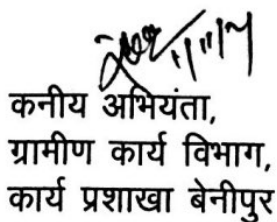 कनीय अभियंता,
ग्रामीण कार्य विभाग,
कार्य प्रशाखा बेनीपुर